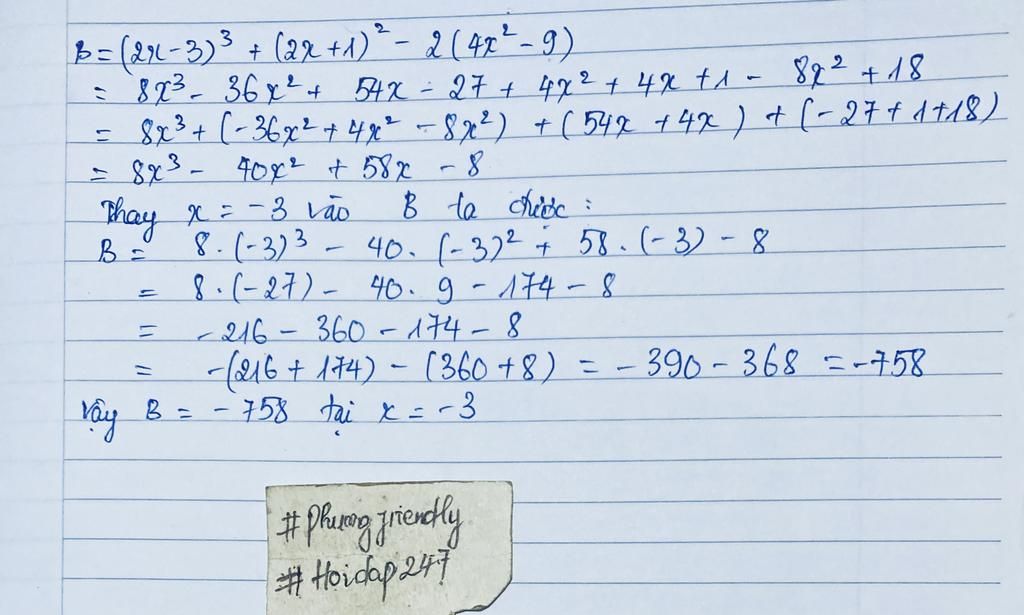 B = (2x - 3)³ + (2x + 1)² - 2(4x² - 9)
= 8x³ - 36x² + 54x - 27 + 4x² + 4x + 1 - 8x² + 18
= 8x³ + (-36x² + 4x² - 8x²) + (54x + 4x) + (-27 + 1 + 18)
= 8x³ - 40x² + 58x - 8
Thay x = -3 vào B ta được :
B = 8 . (-3)³ - 40 . (-3)² + 58 . (-3) - 8
= 8 . (-27) - 40 . 9 - 174 - 8
= -216 - 360 - 174 - 8
= -(216 + 174) - (360 + 8) = -390 - 368 = -758
Vậy B = -758 tại x = -3
#Phuongfriendly
#Hoidap247